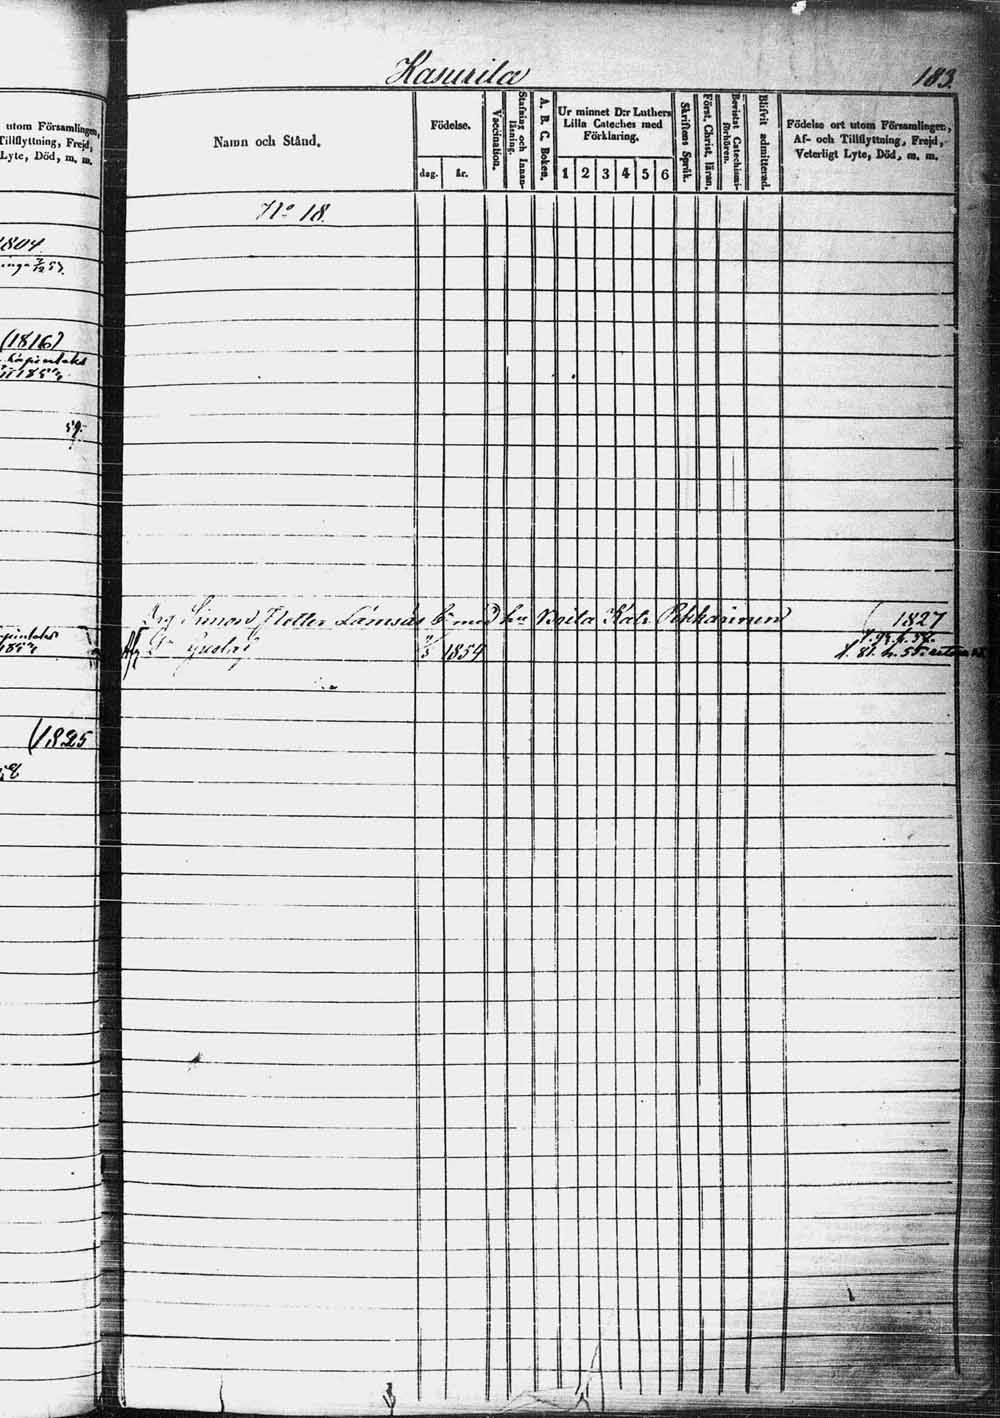 utom Församlingen,
Tillflyttning, Frejd,
Lyte, Död, m. m.
1804.
(1816)
59.
(1825
Kasurila
183.
Namn och Stånd.
Födelse.
dag. år.
Vaccination.
Stafning och Innan-läsning.
A. B. C. Boken.
Ur minnet D:r Luthers
Lilla Cateches med
Förklaring.
1 2 3 4 5 6
Skriftens Språk.
Först. Christ. läran.
Bevistat Catechismi-förhören.
Blifvit admitterad.
Födelse ort utom Församlingen,
Af- och Tillflyttning, Frejd,
Veterligt Lyte, Död, m. m.
No 18.
Simon Lämsäs med Brita Kats Pekkarinen (1827
1854